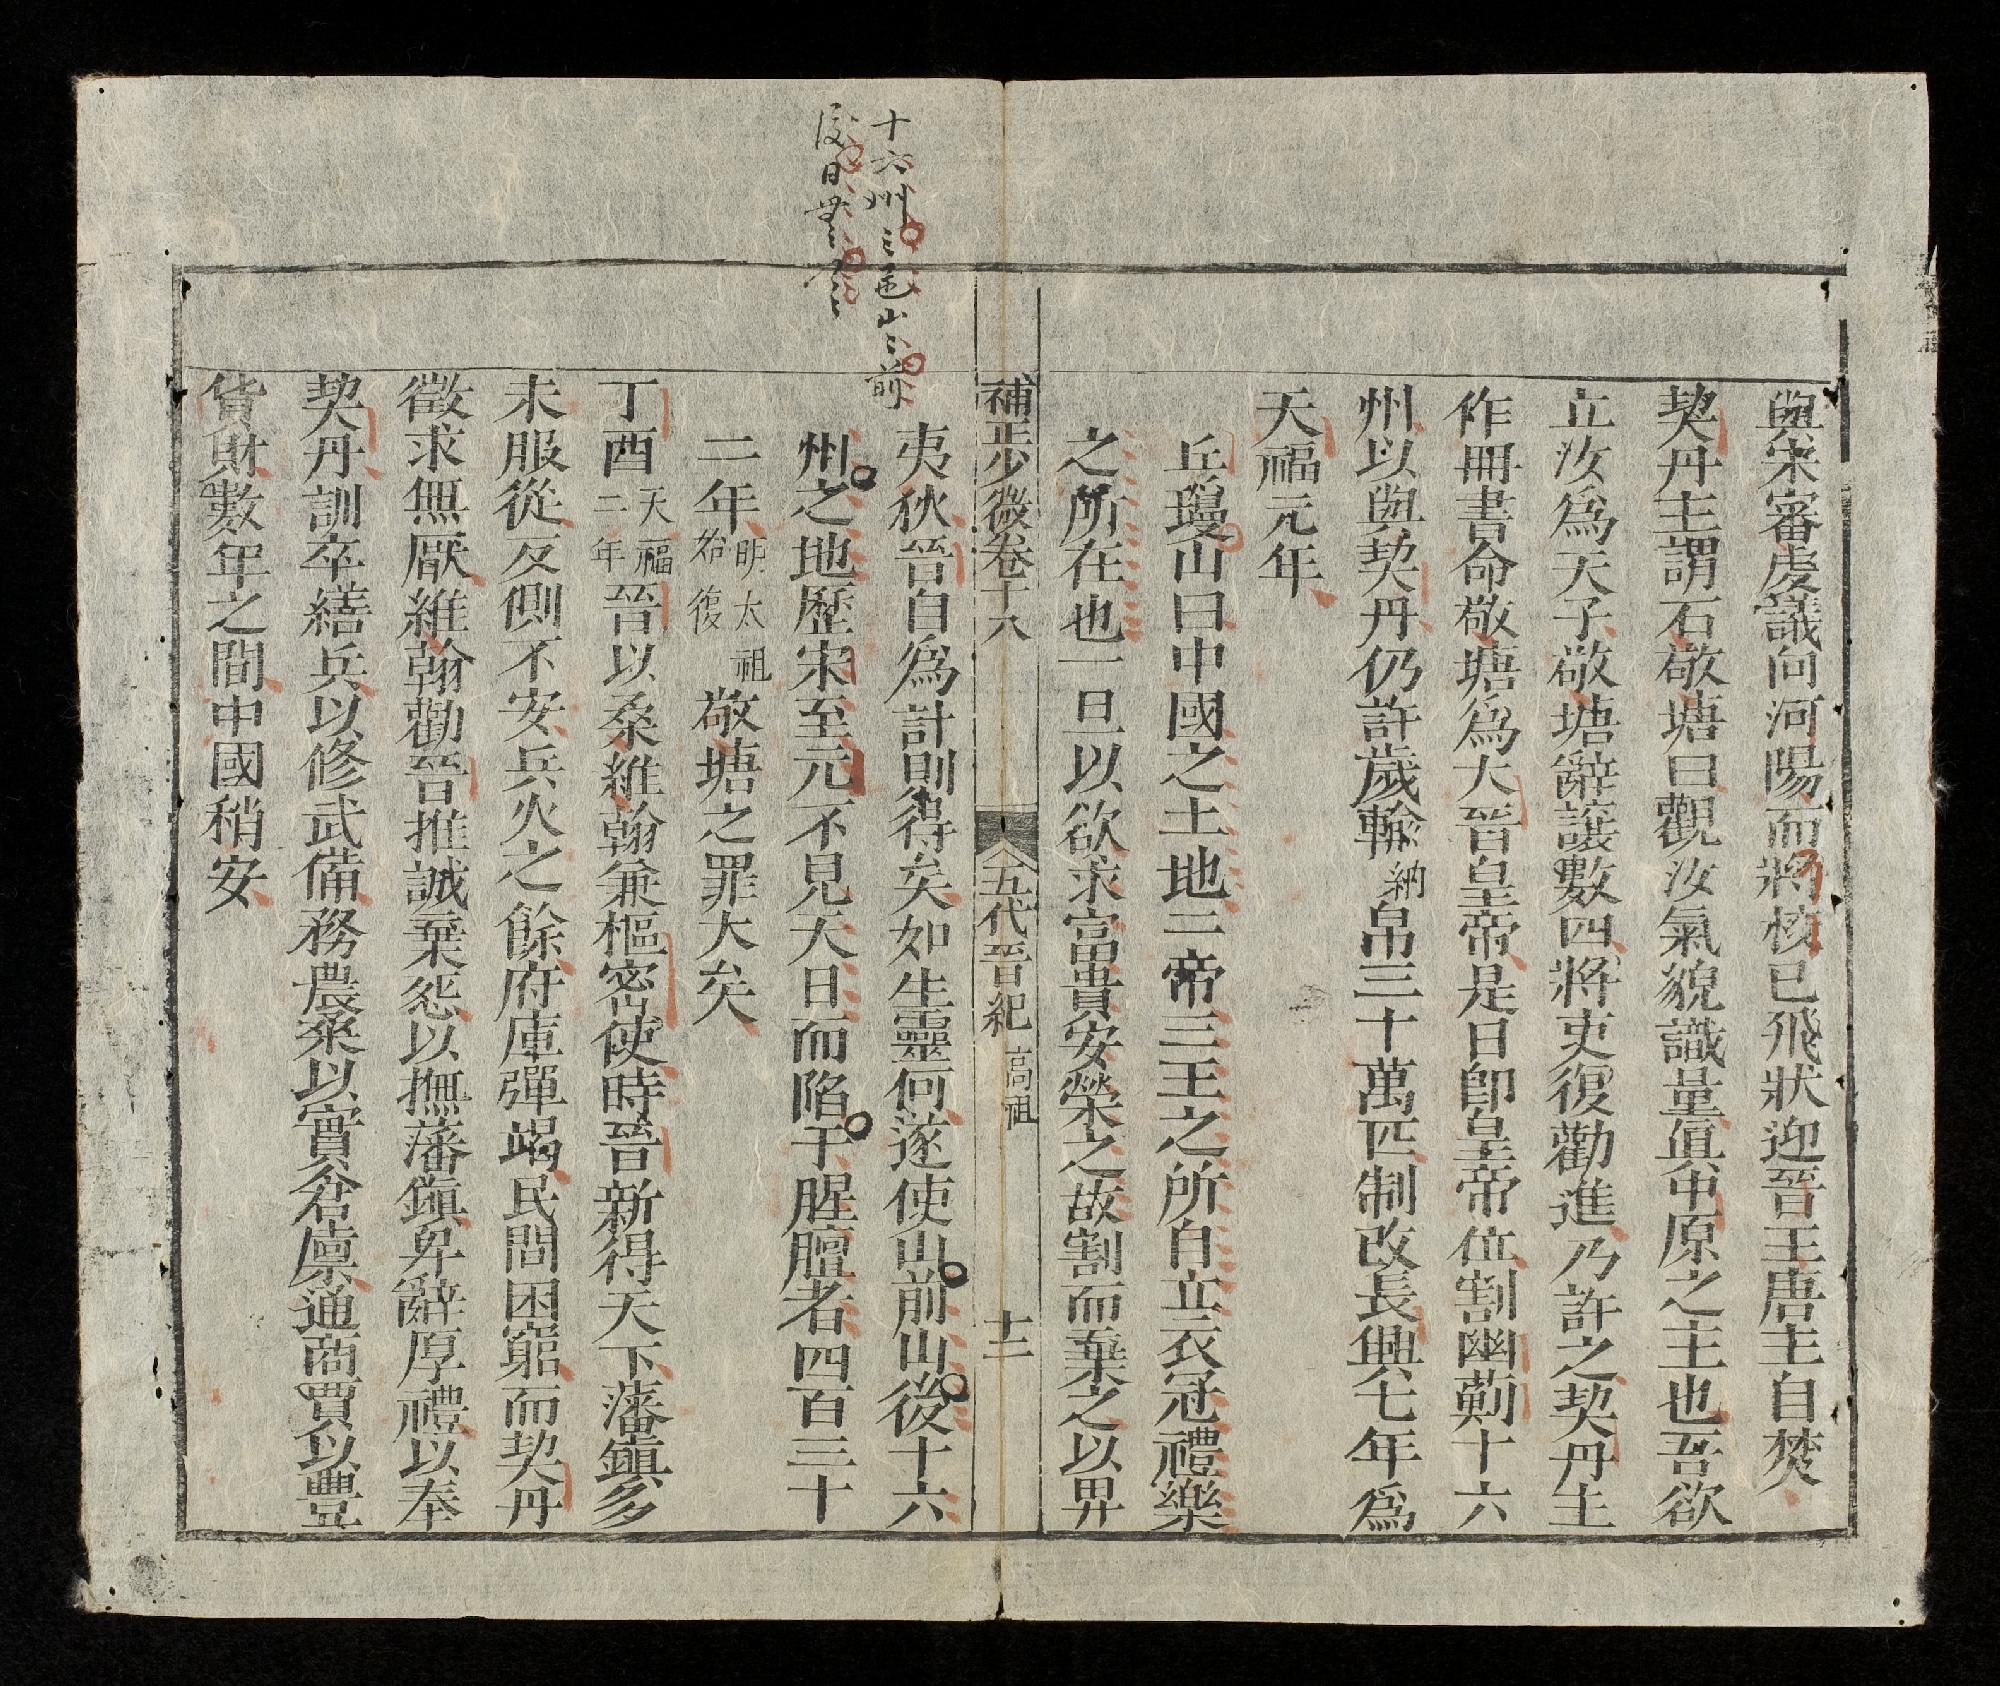 十六州之邑山之前
後日
與宋審虔議向河陽而將校已飛狀迎晉王唐主自焚
契丹主謂石敬塘曰觀汝氣貌識量眞中原之主也吾欲
立汝爲天子敬塘辭讓數四將吏復勸進乃許之契丹主
作冊書命敬塘爲大晉皇帝是日卽皇帝位割幽薊十六
州以與契丹仍許歲輸納帛三十萬匹制改長興七年爲
天福元年
丘瓊山曰中國之土地二帝三王之所自立衣冠禮樂
之所在也一旦以欲求富貴安榮之故割而棄之以畀
補步微卷十八 五代晉紀 高祖 十二
夷狄晉自爲計則得矣如生靈何遂使山前山後十六
州之地歷宋至元不見天日而陷于腥膻者四百三十
二年明太祖始復敬塘之罪大矣
丁酉天福二年晉以桑維翰兼樞密使時晉新得天下藩鎭多
未服從反側不安兵火之餘府庫殫竭民間困窮而契丹
徵求無厭維翰勸晉推誠棄怨以撫藩鎭卑辭厚禮以奉
契丹訓卒繕兵以修武備務農桑以實倉廩通商賈以豐
貨財數年之間中國稍安